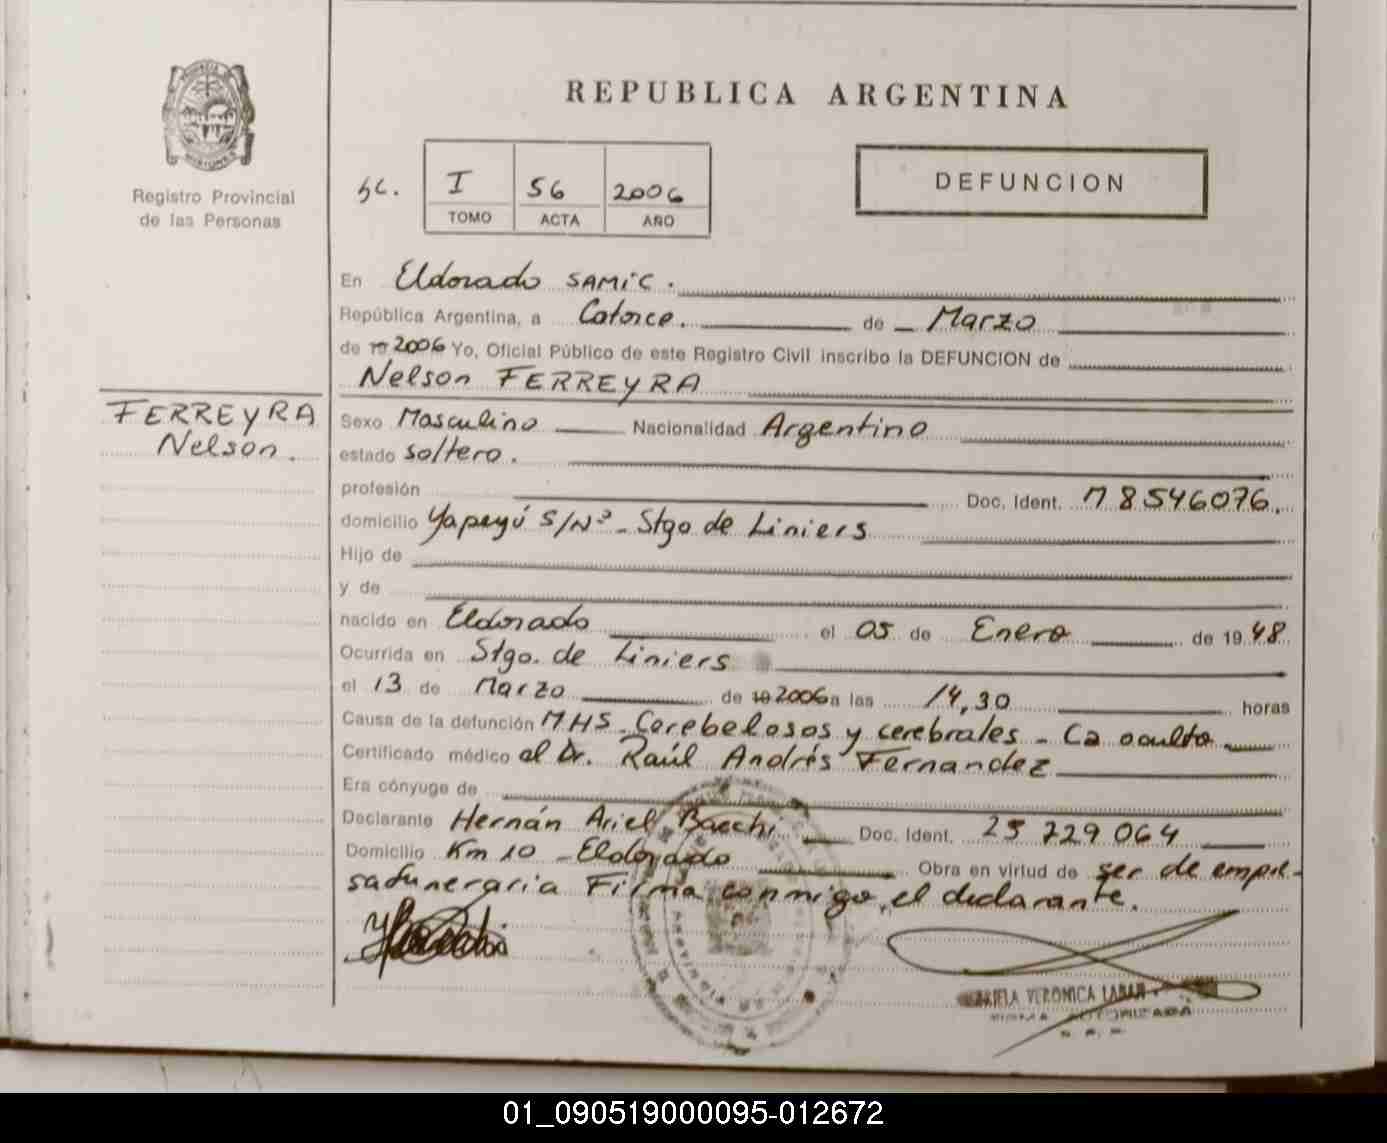 REPUBLICA ARGENTINA
PROVINCIA DE
MISIONES
Registro Provincial
de las Personas
sc. I 56 2006
TOMO ACTA AÑO
DEFUNCION
En Eldorado SAMIC.
República Argentina, a Catorce. de Marzo
de 19 2006 Yo, Oficial Público de este Registro Civil inscribo la DEFUNCION de
Nelson FERREYRA
FERREYRA
Nelson.
Sexo Masculino Nacionalidad Argentino
estado soltero.
profesión Doc. Ident. M 8546076.
domicilio Yapeyú S/Nº - Stgo de Liniers
Hijo de
y de
nacido en Eldorado el 05 de Enero de 1948
Ocurrida en Stgo. de Liniers
el 13 de Marzo de 19 2006 a las 14,30 horas
Causa de la defunción MHS - Cerebelosos y cerebrales - Ca oculto
Certificado médico el Dr. Raúl Andrés Fernandez
Era cónyuge de
Declarante Hernán Ariel Bacchi Doc. Ident. 25 729 064
Domicilio Km 10 - Eldorado Obra en virtud de ser de empre-
sa funeraria Firma conmigo, el declarante.
VERONICA
01_090519000095-012672